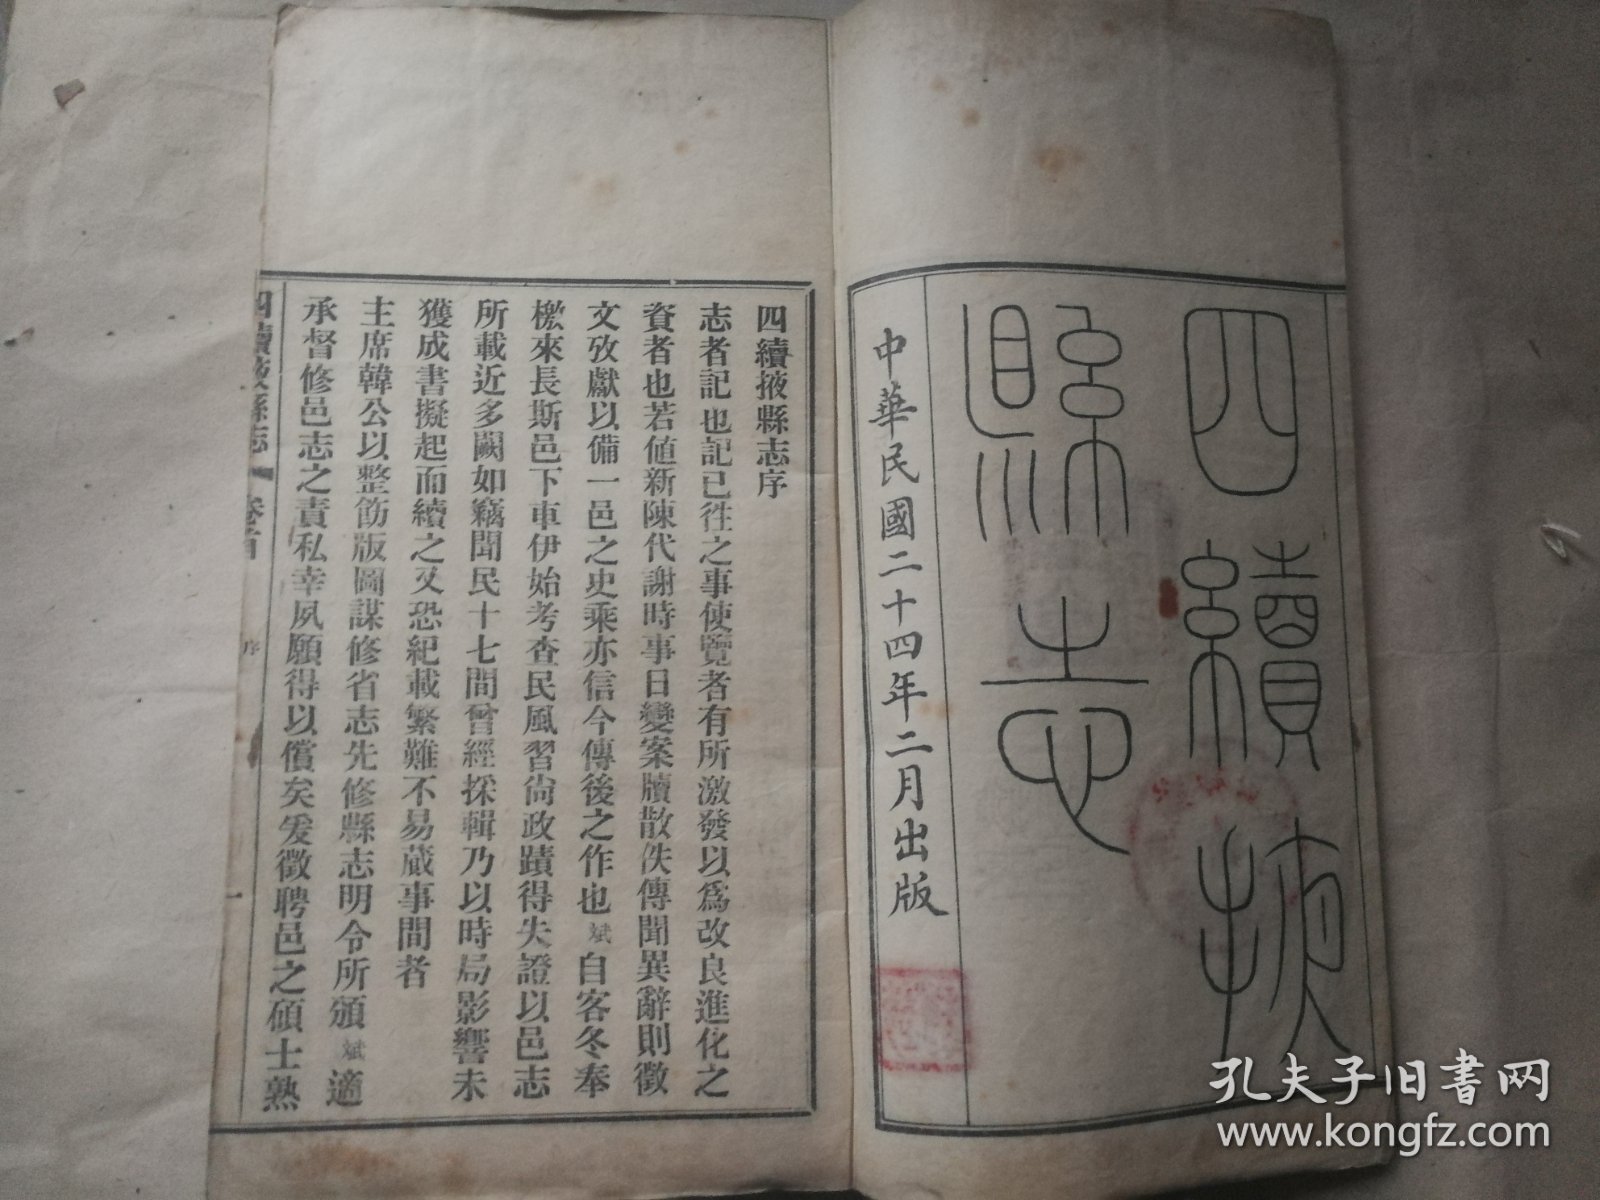 四續掖
縣志
中華民國二十四年二月出版
四續掖縣志序
志者記也記已往之事使覽者有所激發以爲改良進化之
資者也若値新陳代謝時事日變案牘散佚傳聞異辭則徵
文攷獻以備一邑之史乘亦信今傳後之作也斌自客冬奉
檄來長斯邑下車伊始考查民風習尙政蹟得失證以邑志
所載近多闕如竊聞民十七間曾經採輯乃以時局影響未
獲成書擬起而續之又恐紀載繁難不易蕆事間者
主席韓公以整飭版圖謀修省志先修縣志明令所頒斌適
承督修邑志之責私幸夙願得以償矣爰徵聘邑之碩士熟
四續掖縣志 卷首 序 一
孔夫子旧书网
www.kongfz.com